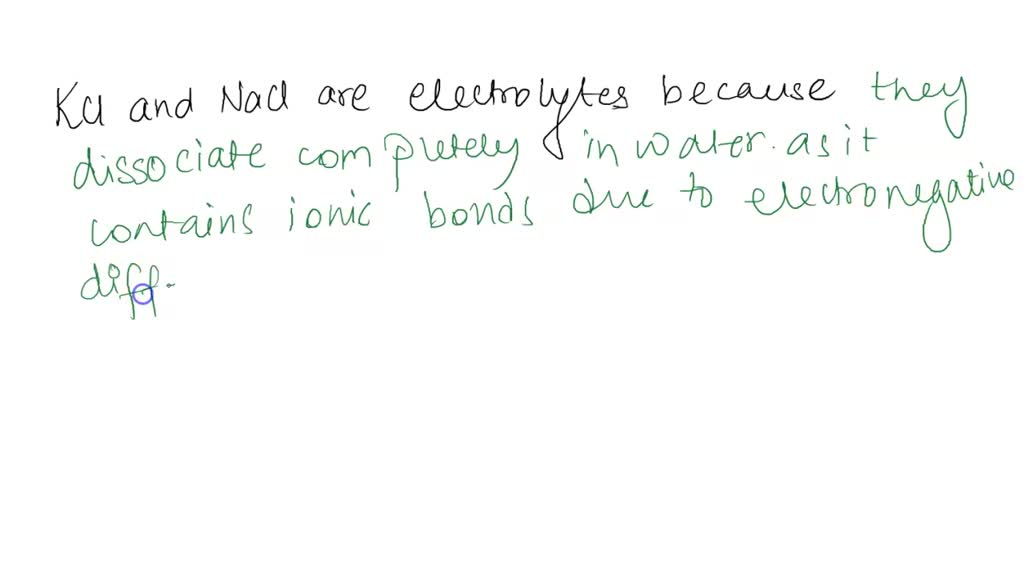 KCl and NaCl are electrolytes because they
dissociate completely in water. as it
contains ionic bonds due to electronegative
diff.